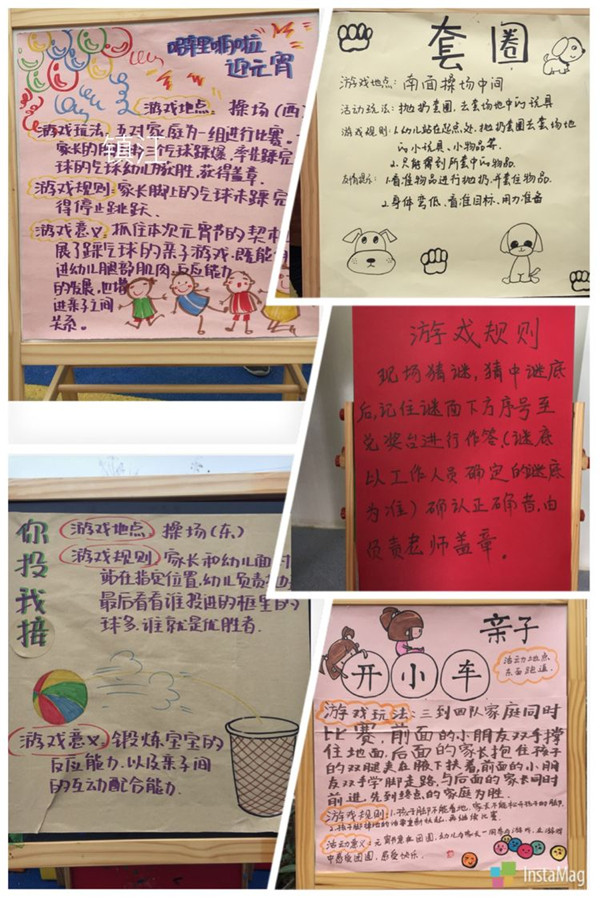 噼里啪啦
迎元宵
游戏地点：操场（西）
游戏玩法：
家庭为一组进行比赛。
家长的
气球踩爆，率先踩完
球的
幼儿为胜，获得盖章。
镇江
游戏规则：家长脚上的气球未踩完
得停止跳跃。
游戏意义：抓住本次元宵节的契机
展了踩气球的亲子游戏，既能
进幼儿腿部肌肉，反应能力
的发展，也增
进亲子之间
关系。
套圈
游戏地点：南面操场中间
活动玩法：抛扔套圈，去套场地中的玩具
游戏规则：1.幼儿站在起点处，抛扔套圈去套场地
的小玩具、小物品等。
2.只能得到所套中的物品。
1.看准物品进行抛扔，并套住物品。
2.身体弯低，看准目标，用力准备
游戏规则
现场猜谜，猜中谜底
后，记住谜面下方序号至
兑奖台进行作答。（谜底
以工作人员确定的谜底
为准）确认正确者，由
负责老师盖章。
你投我接
游戏地点：操场（东）
游戏规则：家长和幼儿面对
站在指定位置，幼儿负责
最后看看谁投进的框里的
球多，谁就是优胜者.
游戏意义：锻炼宝宝的
反应能力，以及亲子间
的互动配合能力.
亲子
开小车
活动地点：
东面跑道
游戏玩法：三到四队家庭同时
比赛，前面的小朋友双手撑
住地面，后面的家长抱住孩子
的双腿夹在腋下扶着，前面的小朋
友双手学脚走路，与后面的家长同时
前进，先到终点的家庭为胜.
游戏规则：1.孩子脚不能着地，家长不能松开孩子的脚。
2.孩子脚掉地的
再继续比赛.
活动意义：元宵节意在团圆，幼儿与家长一同参与游戏，在游戏
中感受团圆，感受快乐.
InstaMag